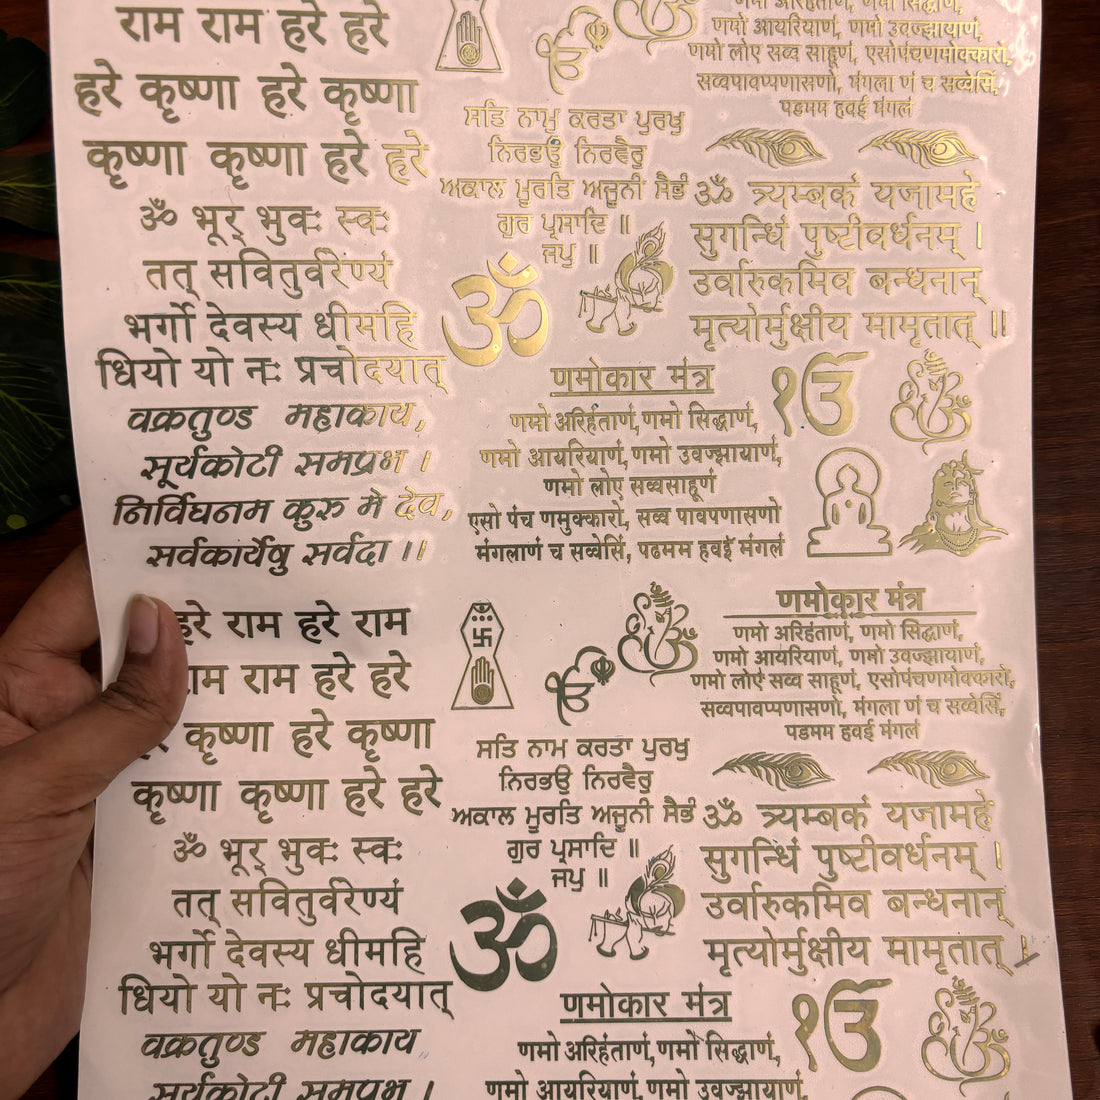 राम राम हरे हरे
हरे कृष्णा हरे कृष्णा
कृष्णा कृष्णा हरे हरे
ॐ भूर् भुवः स्वः
तत् सवितुर्वरेण्यं
भर्गो देवस्य धीमहि
धियो यो नः प्रचोदयात्
वक्रतुण्ड महाकाय,
सूर्यकोटी समप्रभ ।
निर्विघनम कुरु मे देव,
सर्वकार्येषु सर्वदा ।।
ੴ
ਸਤਿ ਨਾਮੁ ਕਰਤਾ ਪੁਰਖੁ
ਨਿਰਭਉ ਨਿਰਵੈਰੁ
ਅਕਾਲ ਮੂਰਤਿ ਅਜੂਨੀ ਸੈਭੰ
ਗੁਰ ਪ੍ਰਸਾਦਿ ॥
ਜਪੁ ॥
ॐ
णमो अरिहंताणं, णमो सिद्धाणं,
णमो आयरियाणं, णमो उवज्झायाणं,
णमो लोए सव्व साहूणं, एसोपंचणमोक्कारो,
सव्वपावप्पणासणो, मंगला णं च सव्वेसिं,
पडमम हवई मंगलं
ॐ त्र्यम्बकं यजामहे
सुगन्धिं पुष्टीवर्धनम् ।
उर्वारुकमिव बन्धनान्
मृत्योर्मुक्षीय मामृतात् ।।
णमोकार मंत्र
णमो अरिहंताणं, णमो सिद्धाणं,
णमो आयरियाणं, णमो उवज्झायाणं,
णमो लोए सव्वसाहूणं
एसो पंच णमुक्कारो, सव्व पावपणासणो
मंगलाणं च सव्वेसिं, पढमम हवई मंगलं
ੴ
हरे राम हरे राम
राम राम हरे हरे
कृष्णा हरे कृष्णा
कृष्णा कृष्णा हरे हरे
ॐ भूर् भुवः स्वः
तत् सवितुर्वरेण्यं
भर्गो देवस्य धीमहि
धियो यो नः प्रचोदयात्
वक्रतुण्ड महाकाय,
सूर्यकोटी समप्रभ ।
ੴ
ਸਤਿ ਨਾਮ ਕਰਤਾ ਪੁਰਖੁ
ਨਿਰਭਉ ਨਿਰਵੈਰੁ
ਅਕਾਲ ਮੂਰਤਿ ਅਜੂਨੀ ਸੈਭੰ
ਗੁਰ ਪ੍ਰਸਾਦਿ ॥
ਜਪੁ ॥
ॐ
णमोकार मंत्र
णमो अरिहंताणं, णमो सिद्धाणं,
णमो आयरियाणं, णमो उवज्झायाणं,
णमो लोए सव्व साहूणं, एसोपंचणमोक्कारो,
सव्वपावप्पणासणो, मंगला णं च सव्वेसिं,
पडमम हवई मंगलं
ॐ त्र्यम्बकं यजामहे
सुगन्धिं पुष्टीवर्धनम् ।
उर्वारुकमिव बन्धनान्
मृत्योर्मुक्षीय मामृतात् ।
णमोकार मंत्र
णमो अरिहंताणं, णमो सिद्धाणं,
णमो आयरियाणं, णमो उवज्झायाणं,
ੴ